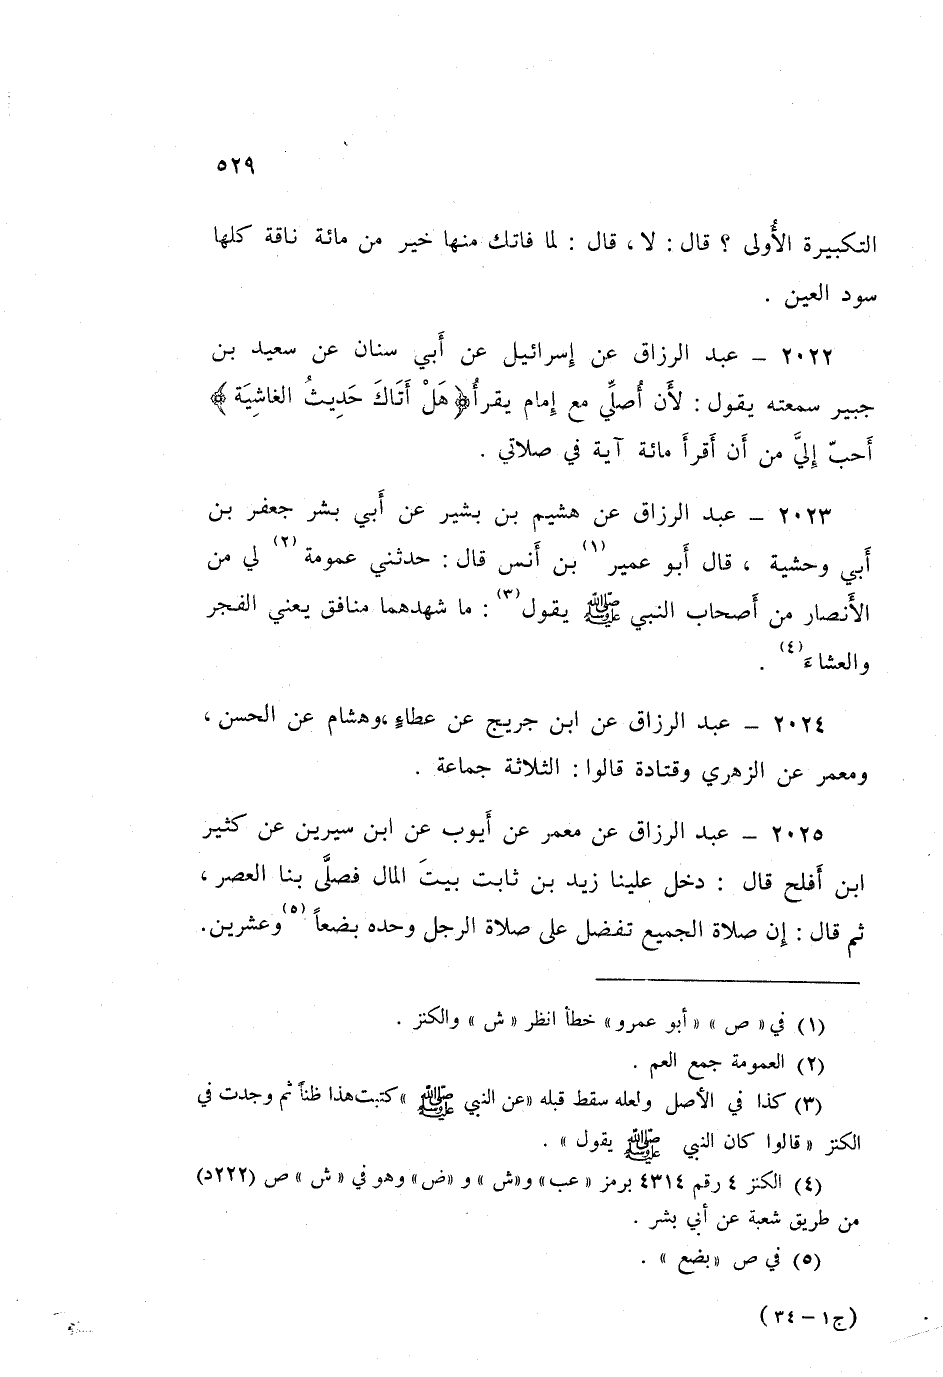 ٥٢٩
التكبيرة الأُولى ؟ قال : لا ، قال : لما فاتك منها خير من مائة ناقة كلها
سود العين .
٢٠٢٢ – عبد الرزاق عن إسرائيل عن أَبي سنان عن سعيد بن
جبير سمعته يقول : لأَن أُصلِّي مع إمام يقرأُ ﴿هَلْ أَتَاكَ حَدِيثُ الغاشِيَة﴾
أَحبّ إليَّ من أَن أَقرأَ مائة آية في صلاتي .
٢٠٢٣ – عبد الرزاق عن هشيم بن بشير عن أَبي بشر جعفر بن
أَبي وحشية ، قال أَبو عمير (١) بن أَنس قال : حدثني عمومة (٢) لي من
الأَنصار من أَصحاب النبي ﷺ يقول (٣) : ما شهدهما منافق يعني الفجر
والعشاءَ (٤) .
٢٠٢٤ – عبد الرزاق عن ابن جريج عن عطاءٍ ،وهشام عن الحسن ،
ومعمر عن الزهري وقتادة قالوا : الثلاثة جماعة .
٢٠٢٥ – عبد الرزاق عن معمر عن أَيوب عن ابن سيرين عن كثير
ابن أَفلح قال : دخل علينا زيد بن ثابت بيتَ المال فصلَّى بنا العصر ،
ثم قال : إن صلاة الجميع تفضل على صلاة الرجل وحده بضعاً (٥) وعشرين.
(١) في « ص » « أبو عمرو» خطأ انظر « ش » والكنز .
(٢) العمومة جمع العم .
(٣) كذا في الأصل ولعله سقط قبله «عن النبي ﷺ » كتبت هذا ظناً ثم وجدت في
الكنز « قالوا كان النبي ﷺ يقول » .
(٤) الكنز ٤ رقم ٤٣١٤ برمز « عب» و«ش » و «ض» وهو في « ش » ص (٢٢٢د)
من طريق شعبة عن أبي بشر .
(٥) في ص «بضع » .
(ج١ – ٣٤)